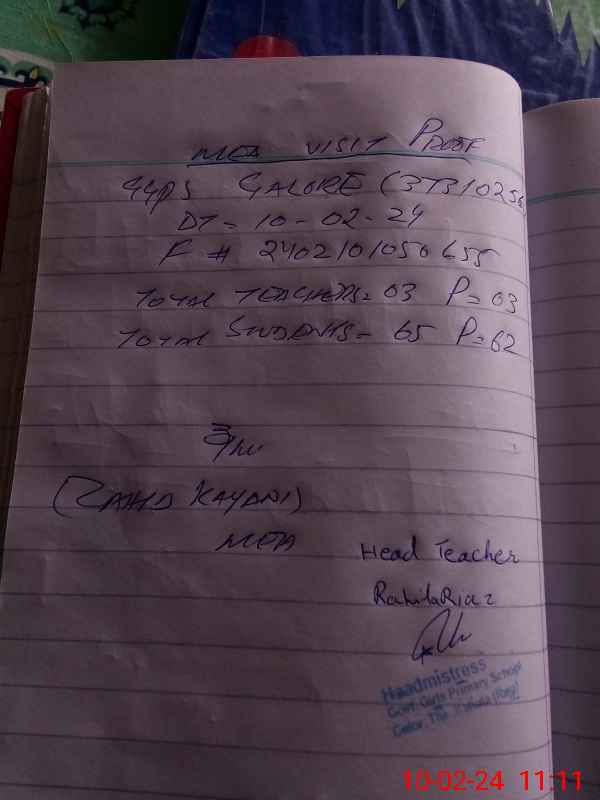 MEA VISIT PROOF
GGPS GALORE (37310256
DT = 10-02-24
F # 2402101050655
TOTAL TEACHERS = 03 P = 03
TOTAL STUDENTS = 65 P = 62
(ZAHID KAYANI)
MEA
Head Teacher
Rahila Riaz
Haadmistress
Govt. Girls Primary School
Galor, The. Kahuta (Rwp)
10-02-24 11:11